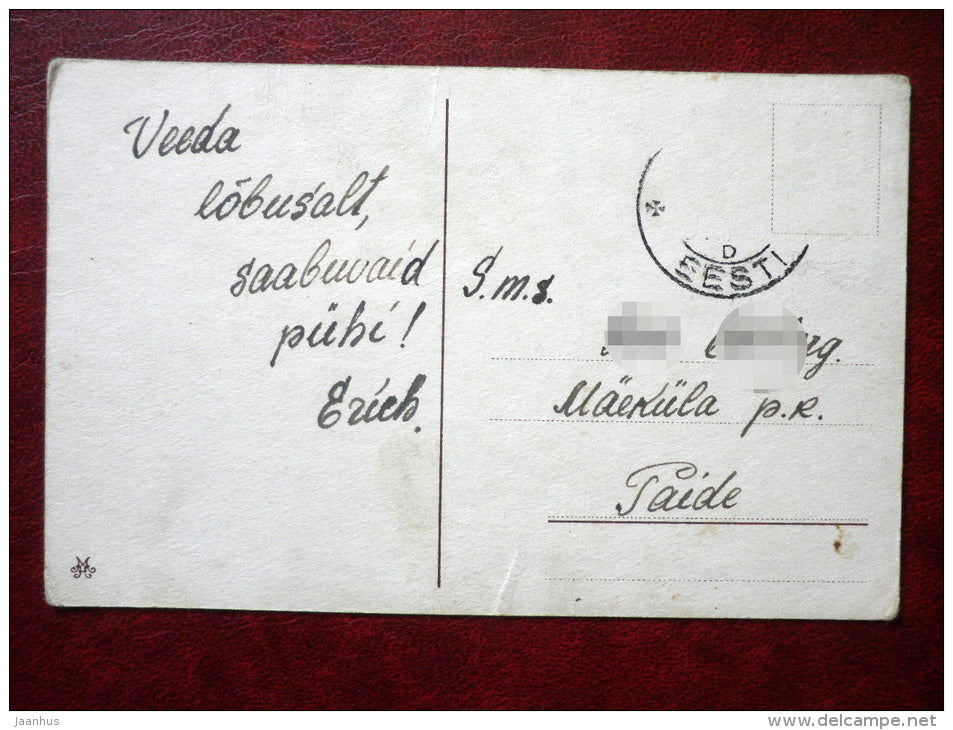 Veeda
lõbusalt,
saabuvaid
pühi!
Erich.
S.m.s.
Mäeküla p.k.
Paide
D
EESTI
Jaanhus
www.delcampe.net